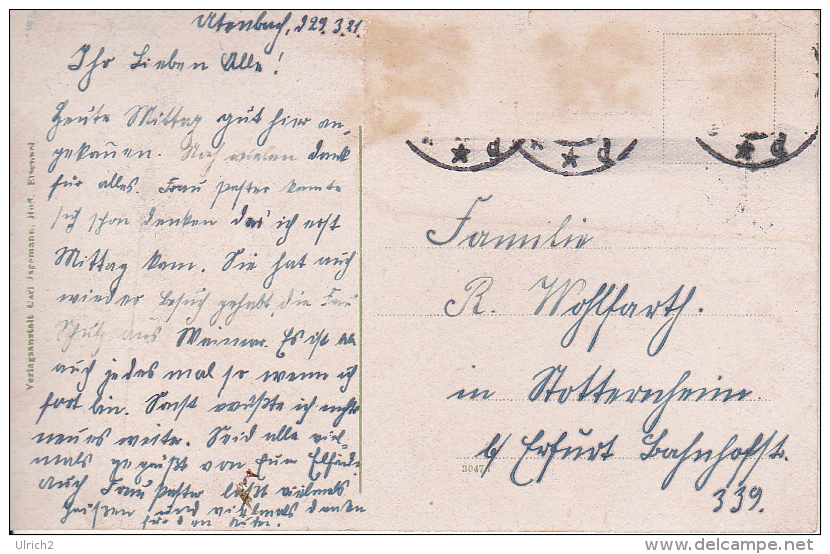 Utenbach, d 29.3.21.
Ihr Lieben Alle!
Heute Mittag gut hier an-
gekommen. Noch vielen Dank
für alles. Frau Paster konnte
sich schon denken das ich erst
Mittag kam. Sie hat auch
wieder Besuch gehabt, die Frau
Schulz aus Weimar. Es ist ja
auch jedes mal so wenn ich
fort bin. Sonst wüßte ich nichts
neues weiter. Seid alle viel-
mals gegrüßt von Eure Elfriede
Auch Frau Paster läßt vielmals
grüßen und vielmals danken
für den
Verlagsanstalt Carl Jagemann, Hofl. Eisenach
Familie
R. Wohlfarth.
in Stotternheim
b/ Erfurt Bahnhofstr.
339.
3047
Ulrich2
www.delcampe.net